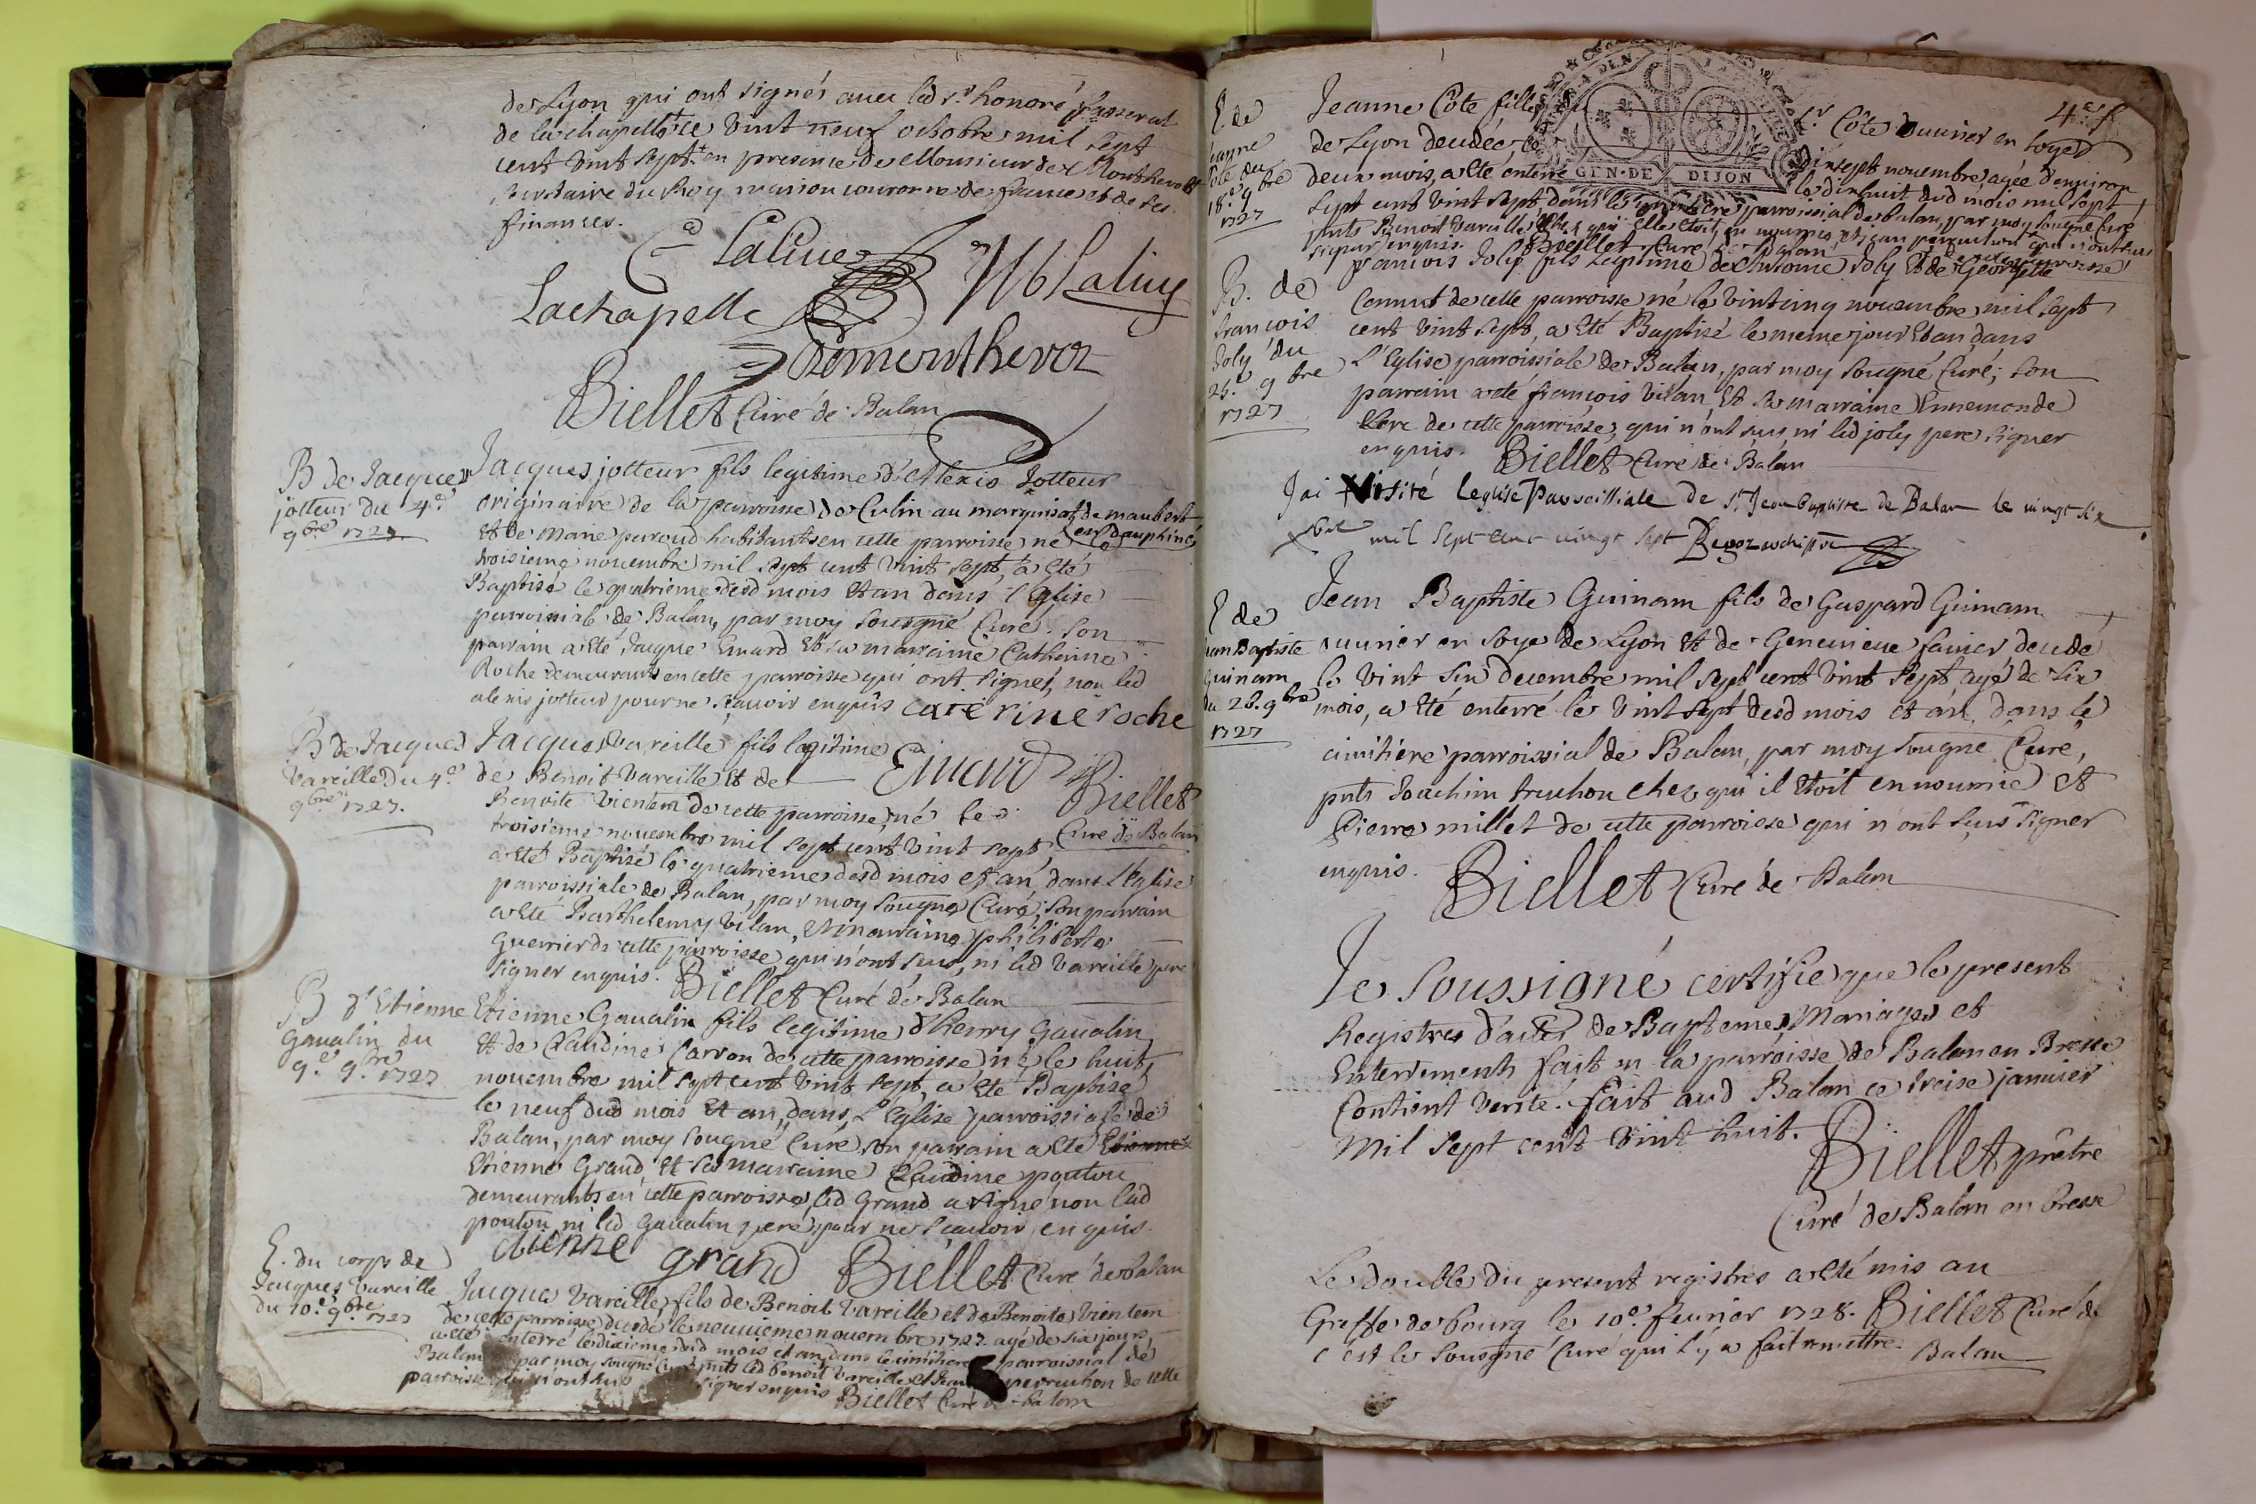 de Lyon qui ont signés avec led sr. honoré
de la chapelle ce vint neuf octobre mil sept
cent vint sept. en presence de Monsieur de Monthevoz
du Roy maison couronne de france et de ses
finances.
Lalive
M Lalive
Lachapelle
demonthevoz
Biellet Curé de Balan
B de Jacques
jotteur du 4.e
9bre 1727
Jacques jotteur fils legitime d'Alexis Jotteur
originaire de la parroisse de Culin au marquisat de maubert
en dauphiné
et de Marie paroud habitants en cette parroisse né
troisieme novembre mil sept cent vint sept, a eté
Baptisé le quatrieme desd mois et an dans l'Eglise
parroissiale de Balan, par moy sousgné Curé. son
parrain a eté Jacque Emard et sa marraine Catherine
Roche demeurants en cette parroisse qui ont signer, non led
alexis jotteur pour ne sçavoir enquis caterine roche
Emard
Biellet
Curé de Balan
B de Jacques
Vareille du 4.e
9bre 1727.
Jacques Vareille fils legitime
de Benoit Vareille et de
Benoite Vientem de cette parroisse, né le
troisieme novembre mil sept cent vint sept
a eté Baptizé le quatrieme desd mois et an, dans l'Eglise
parroissiale de Balan, par moy sousgné Curé; son parrain
a eté Barthelemy Vilan, et marraine philiberte
Guerrier de cette parroisse qui n'ont sçus, ni led Vareille pere
signer enquis. Biellet Curé de Balan
B d'Etienne
Gavalin du
9.e 9.bre 1727
Etienne Gavalin fils legitime d'henry Gavalin
et de Claudine Carron de cette parroisse né le huit
novembre mil sept cent vint sept, a eté Baptisé
le neuf dud mois et an, dans l'Eglise parroissiale de
Balan, par moy sousgné Curé, son parrain a eté Etienne
Etienne Grand et sa marraine Claudine poutou
demeurants en cette parroisse, led Grand a signé non lad
poutou ni led Gavalin pere pour ne sçavoir enquis.
etienne grand Biellet Curé de balan
E. du corps de
Jacques Vareille
du 10.e 9.bre 1727
Jacques Vareille, fils de Benoit Vareille et de Benoite Vientem
de cette parroisse decedé le neuvieme novembre 1727. agé de six jours,
a eté enterré le dixieme dud mois et an, dans le cimitiere parroissial de
Balan par moy sousgné Curé, pnts led Benoit Vareille et Jean perruchon de cette
parroisse qui n'ont sus signer enquis Biellet Curé de balan
4.e f
GEN. DE DIJON
E de
Jeanne
Côte du
18.e 9bre
1727
Jeanne Côte fille du sr. Côte ouvrier en soyes
de Lyon decedée le dixsept novembre agée d'environ
deux mois, a eté enterré le dixhuit dud mois mil sept
cent vint sept, dans le cimitiere parroissial de balan, par moy sousgné Curé
pnts Benoit Vareille chez qui elle etoit en nourrice, et jean perruchon qui n'ont sus
signer enquis. Biellet Curé de Balan de cette parroisse
B. de
francois
Joly du
25.e 9bre
1727
francois Joly fils legitime de Antoine Joly et de Georgette
Connut de cette parroisse né le Vintcinq novembre mil sept
cent vint sept, a eté Baptisé le meme jour et an dans
l'Eglise parroissiale de Balan, par moy sousgné Curé; son
parrain a eté francois Vilan, et sa marraine Ennemonde
de cette parroisse, qui n'ont sus ni led joly pere signer
enquis. Biellet Curé de Balan
Jai Visité leglise Parroissiale de St Jean baptiste de Balan le vingt six
xbre mil sept cent vingt sept
E de
jean Baptiste
Guinam
du 26. 9bre
1727
Jean Baptiste Guinam fils de Gaspard Guinam
ouvrier en soye de Lyon et de Genevieve favier decedé
le Vint six decembre mil sept cent vint sept agé de six
mois, a eté enterré le vint sept desd mois et an, dans le
cimitiere parroissial de Balan, par moy sousgné Curé,
pnts Joachim truchon chez qui il etoit en nourrice et
Pierre millet de cette parroisse qui n'ont sçus signer
enquis. Biellet Curé de Balan
Je soussigné certifie que le present
Registre d'actes de Baptemes, Mariages et
Enterrements fait en la parroisse de Balan en Bresse
Contient verité. fait aud Balan ce treise janvier
Mil sept cent vint huit.
Biellet prêtre
Curé de Balan en bresse
Le double du present registres a eté mis au
Greffe de bourg le 10.e fevrier 1728. Biellet Curé de
c'est le sousgné Curé qui l'y a fait remettre. Balan